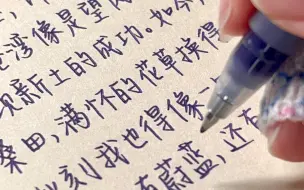 湾像是望
新土的成功。如今
桑田,满怀的花草换得
刻我也得像一
有蔚蓝,还有